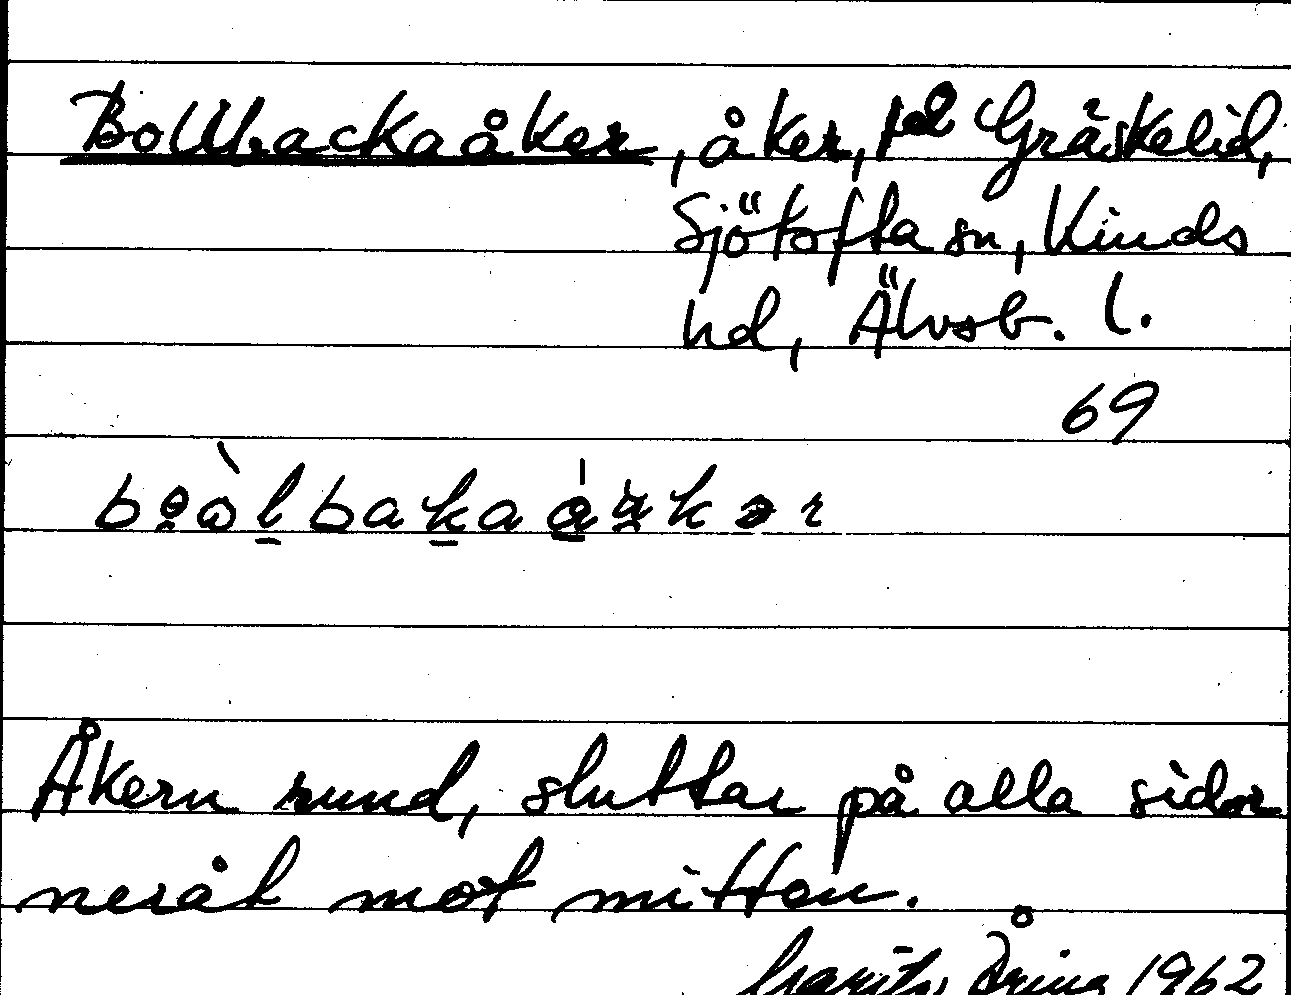 Bollbackaåker, åker, på Gräskelid,
Sjötofta sn, Kinds
hd, Älvsb. l.
69
Åkern rund, sluttar på alla sidor
neråt mot mitten.
1962